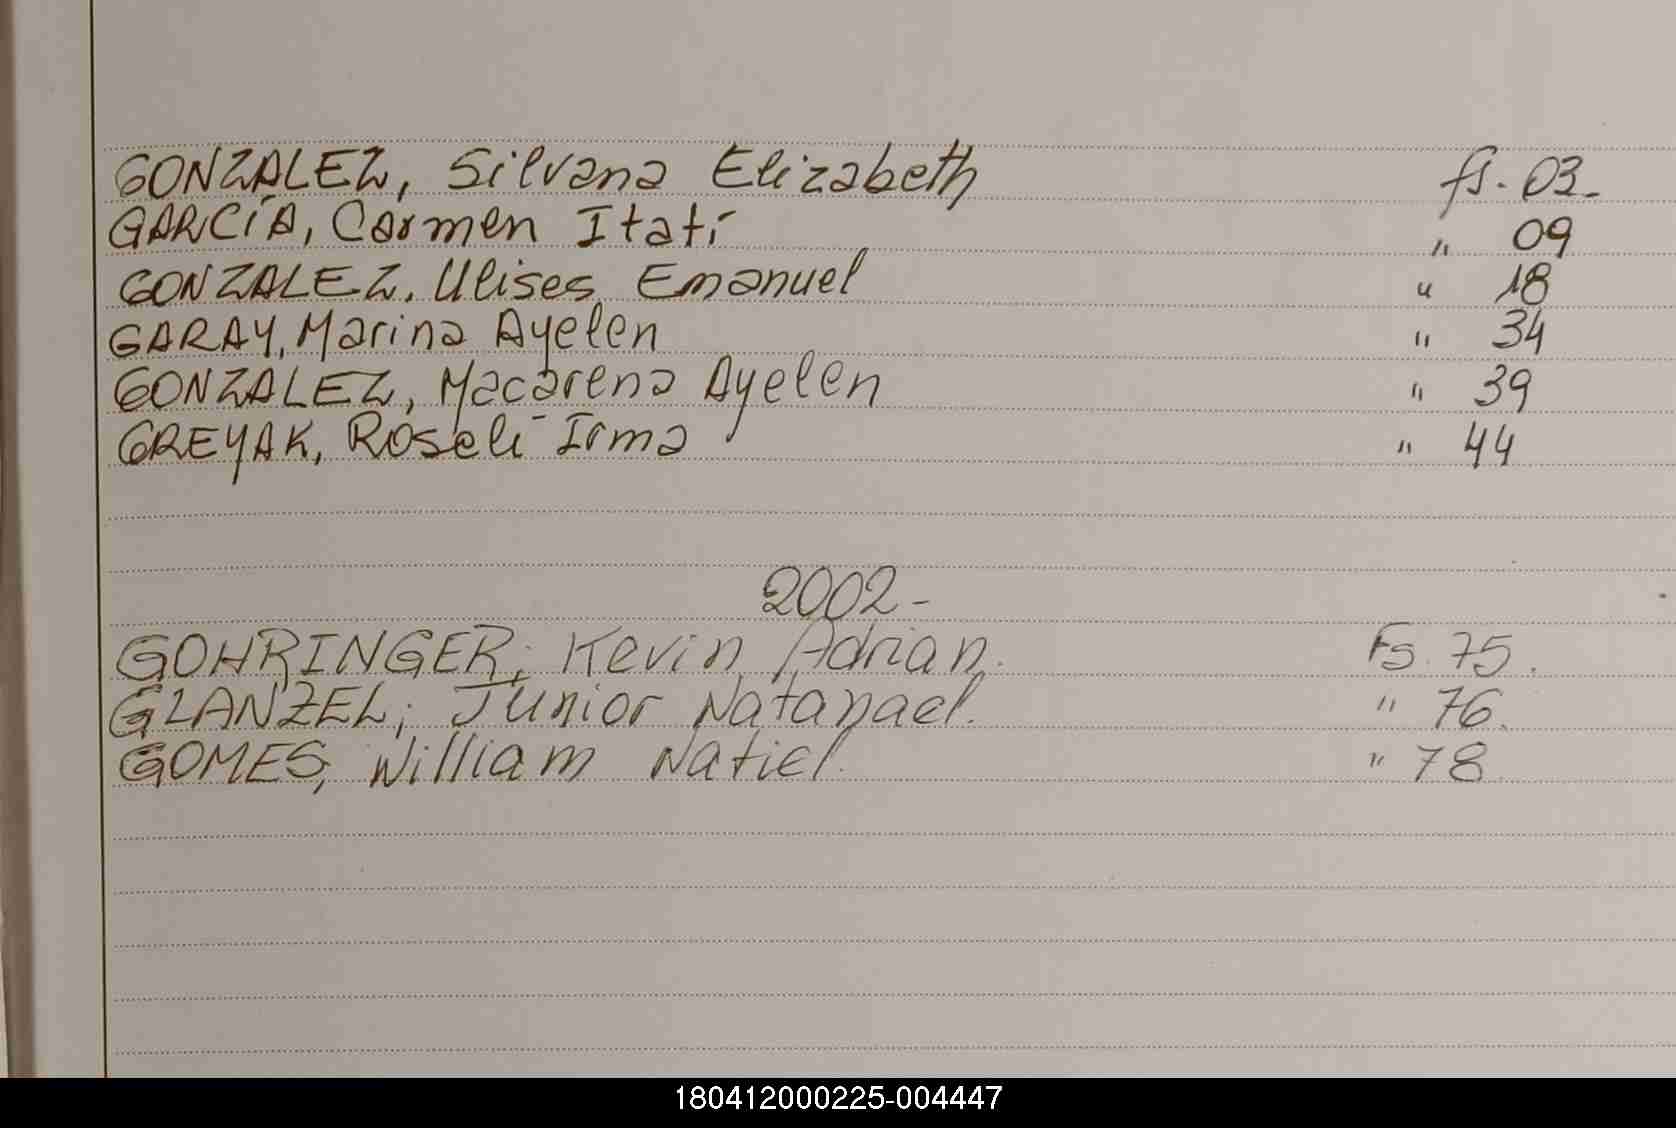 GONZALEZ, Silvana Elizabeth fs. 03-
GARCÍA, Carmen Itatí " 09
GONZALEZ, Ulises Emanuel " 18
GARAY, Marina Ayelen " 34
GONZALEZ, Macarena Ayelen " 39
GREYAK, Roseli Irma " 44
2002-
GOHRINGER; Kevin Adrian. Fs. 75.
GLANZEL; Junior Natanael. " 76.
GOMES; William Natiel. " 78.
180412000225-004447